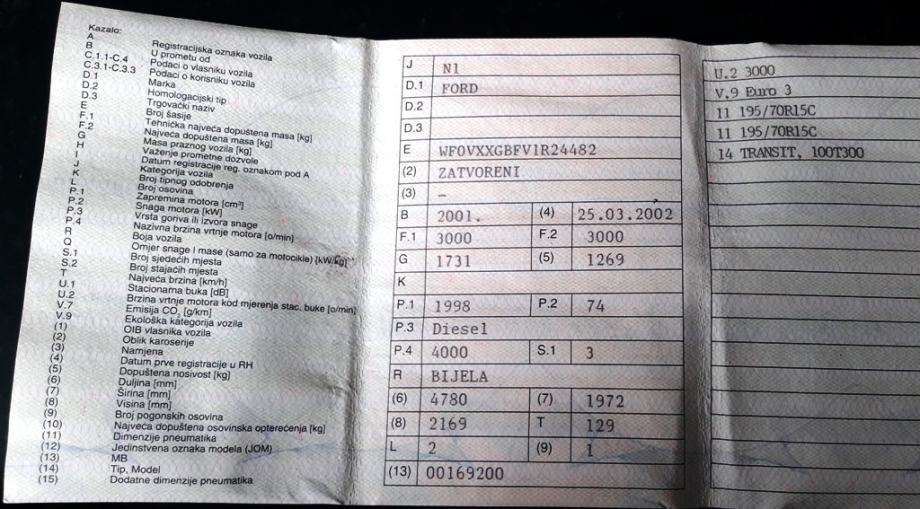 Kazalo:
A Registracijska oznaka vozila
B U prometu od
C.1.1-C.4 Podaci o vlasniku vozila
C.3.1-C.3.3 Podaci o korisniku vozila
D.1 Marka
D.2 Homologacijski tip
D.3 Trgovački naziv
E Broj šasije
F.1 Tehnička najveća dopuštena masa [kg]
F.2 Najveća dopuštena masa [kg]
G Masa praznog vozila [kg]
H Važenje prometne dozvole
I Datum registracije reg. oznakom pod A
J Kategorija vozila
K Broj tipnog odobrenja
L Broj osovina
P.1 Zapremina motora [cm³]
P.2 Snaga motora [kW]
P.3 Vrsta goriva ili izvora snage
P.4 Nazivna brzina vrtnje motora [o/min]
R Boja vozila
Q Omjer snage i mase (samo za motocikle) [kW/kg]
S.1 Broj sjedećih mjesta
S.2 Broj stajaćih mjesta
T Najveća brzina [km/h]
U.1 Stacionarna buka [dB]
U.2 Brzina vrtnje motora kod mjerenja stac. buke [o/min]
V.7 Emisija CO₂ [g/km]
V.9 Ekološka kategorija vozila
(1) OIB vlasnika vozila
(2) Oblik karoserije
(3) Namjena
(4) Datum prve registracije u RH
(5) Dopuštena nosivost [kg]
(6) Duljina [mm]
(7) Širina [mm]
(8) Visina [mm]
(9) Broj pogonskih osovina
(10) Najveća dopuštena osovinska opterećenja [kg]
(11) Dimenzije pneumatika
(12) Jedinstvena oznaka modela (JOM)
(13) MB
(14) Tip, Model
(15) Dodatne dimenzije pneumatika
J N1
D.1 FORD
D.2
D.3
E WF0VXXGBFV1R24482
(2) ZATVORENI
(3) –
B 2001. (4) 25.03.2002
F.1 3000 F.2 3000
G 1731 (5) 1269
K
P.1 1998 P.2 74
P.3 Diesel
P.4 4000 S.1 3
R BIJELA
(6) 4780 (7) 1972
(8) 2169 T 129
L 2 (9) 1
(13) 00169200
U.2 3000
V.9 Euro 3
11 195/70R15C
11 195/70R15C
14 TRANSIT, 100T300